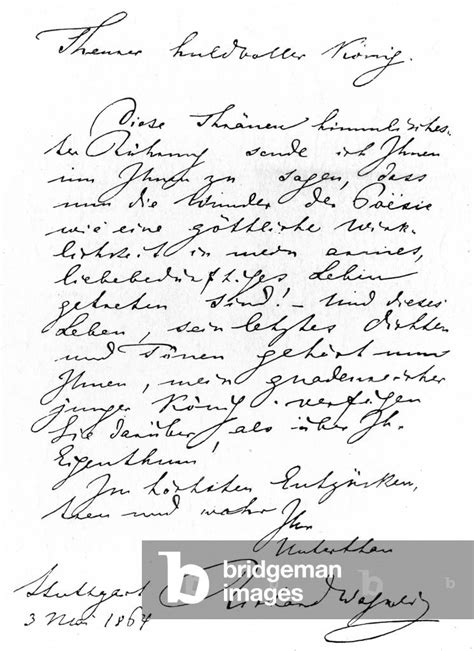 Theurer huldvoller König.
Diese Thränen himmlisches-
ter Rührung sende ich Ihnen
um Ihnen zu sagen, dass
nun die Wunder der Poësie
wie eine göttliche Wirk-
lichkeit in mein armes,
liebebedürftiges Leben
getreten sind! – Und dieses
Leben, sein letztes Dichten
und Tönen gehört nun
Ihnen, mein gnadenreicher
junger König. verfügen
Sie darüber, als über Ihr
Eigenthum!
Im höchsten Entzücken,
treu und wahr
Ihr
Unterthan
Stuttgart Richard Wagner
3 Mai 1864
b bridgeman images
b